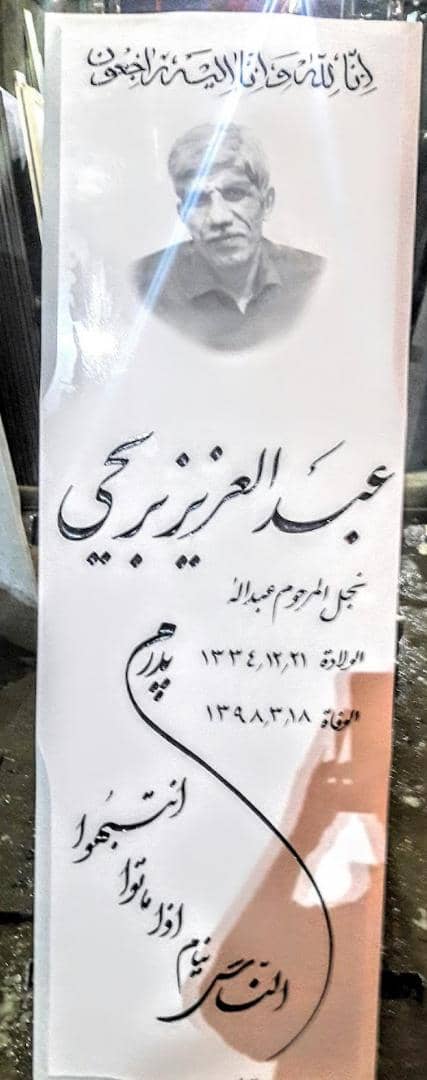 انا لله وانا اليه راجعون
عبدالعزیز بریحی
نجل المرحوم عبداله
الولادة ۱۳۳٤٫۱۲٫۲۱
الوفاة ۱۳۹۸٫۳٫۱۸
پدرم
الناس
نیام
اذا ماتوا
انتبهوا